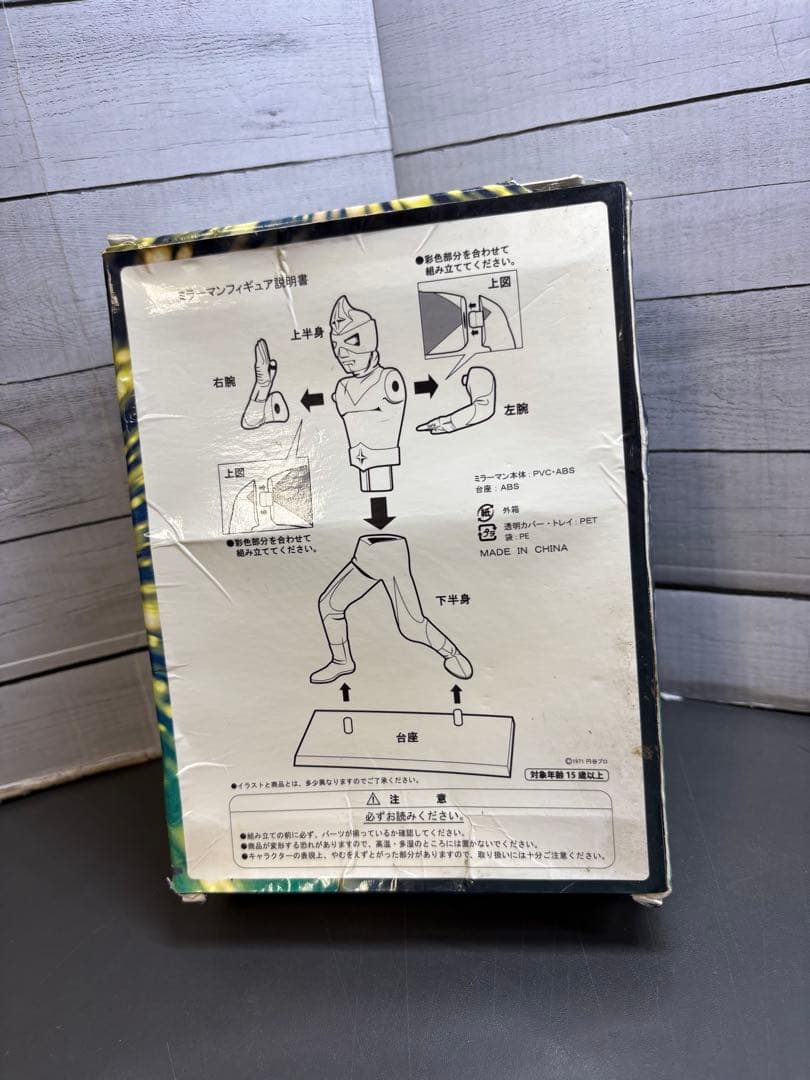 ミラーマンフィギュア説明書
●彩色部分を合わせて
組み立ててください。
上図
上半身
右腕
左腕
上図
●彩色部分を合わせて
組み立ててください。
ミラーマン本体：PVC・ABS
台座：ABS
紙 外箱
プラ 透明カバー・トレイ：PET
袋：PE
MADE IN CHINA
下半身
台座
©1971 円谷プロ
対象年齢 15 歳以上
●イラストと商品とは、多少異なりますのでご了承ください。
⚠ 注 意
必ずお読みください。
●組み立ての前に必ず、パーツが揃っているか確認してください。
●商品が変形する恐れがありますので、高温・多湿のところには置かないでください。
●キャラクターの表現上、やむをえずとがった部分がありますので、取り扱いには十分ご注意ください。